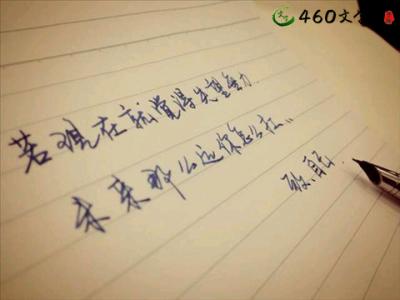 460文
若现在就觉得失望无力
未来那么远你怎么扛..